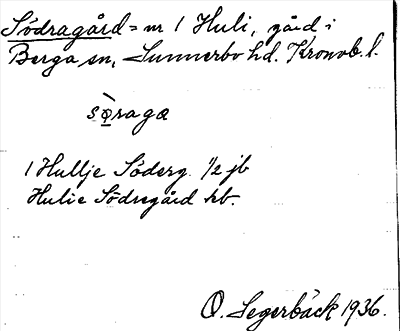 Södragård = nr 1 Huli, gård i
Berga sn, Sunnerbo hd. Kronob. l.
sò̱raga
1 Hullje Söderg. 1/2 jb
Hulie Södregård kb.
O. Segerbäck 1936.